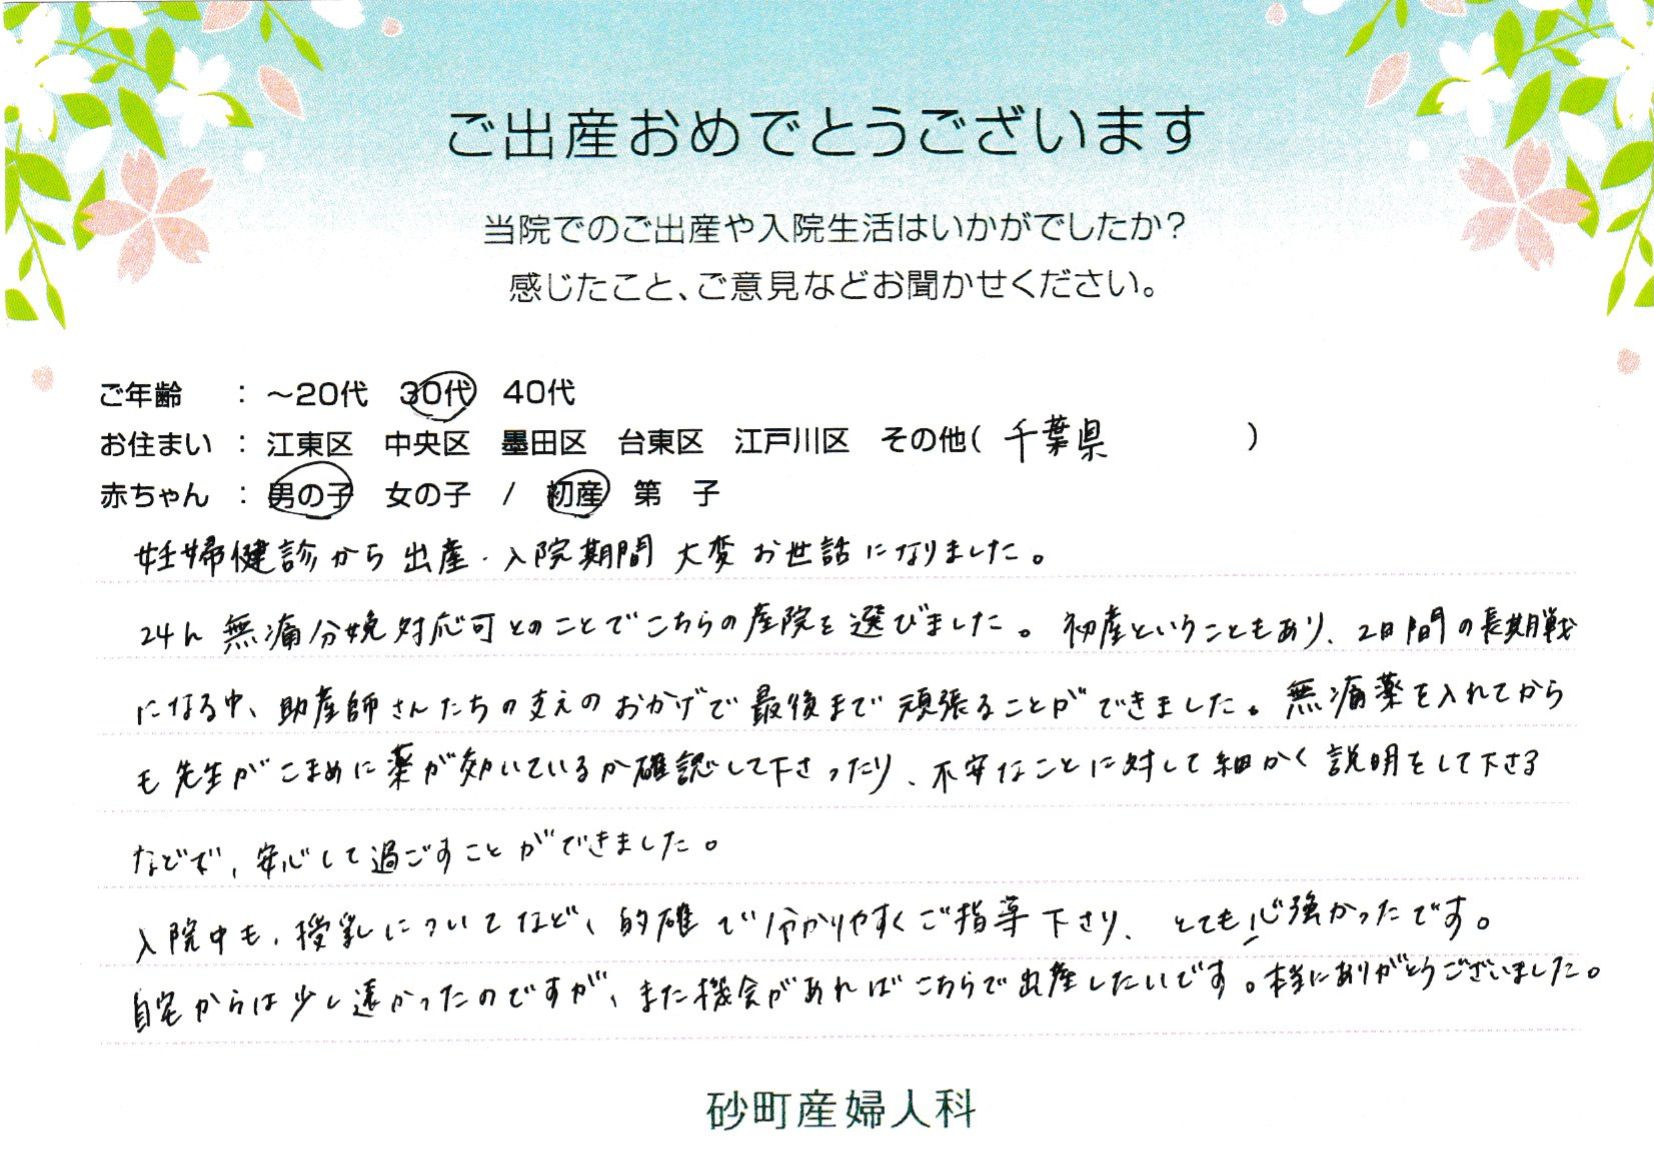 ご出産おめでとうございます
当院でのご出産や入院生活はいかがでしたか？
感じたこと、ご意見などお聞かせください。
ご年齢 ： ～20代 30代 40代
お住まい ： 江東区 中央区 墨田区 台東区 江戸川区 その他( 千葉県 )
赤ちゃん ： 男の子 女の子 / 初産 第 子
妊婦健診から出産・入院期間大変お世話になりました。
24h無痛分娩対応可とのことでこちらの産院を選びました。初産ということもあり、2日間の長期戦
になる中、助産師さんたちの支えのおかげで最後まで頑張ることができました。無痛薬を入れてから
も先生がこまめに薬が効いているか確認して下さったり、不安なことに対して細かく説明をして下さる
などで、安心して過ごすことができました。
入院中も、授乳についてなど、的確で分かりやすくご指導下さり、とても心強かったです。
自宅からは少し遠かったのですが、また機会があればこちらで出産したいです。本当にありがとうございました。
砂町産婦人科